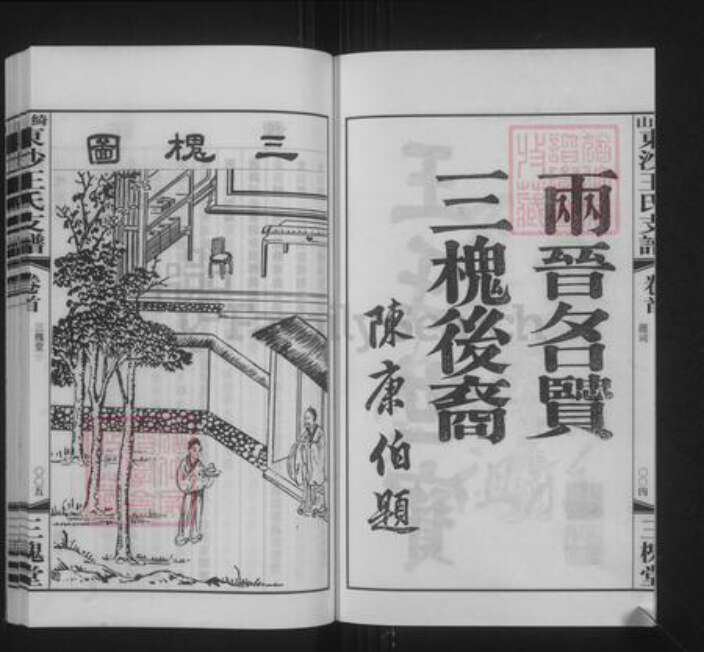 兩晉名賢
三槐後裔
陳康伯題
東沙王氏支譜
卷首
〇〇四
三槐堂
三槐圖
東沙王氏支譜
卷首
三槐堂
〇〇五
三槐堂